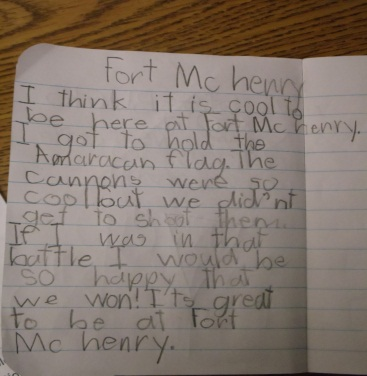 Fort Mc henry
I think it is cool to
be here at Fort Mc henry.
I got to hold the
Amaracan flag. The
cannons were so
cool but we did'nt
get to shoot them.
If I was in that
battle I would be
so happy that
we won! It's great
to be at Fort
Mc henry.